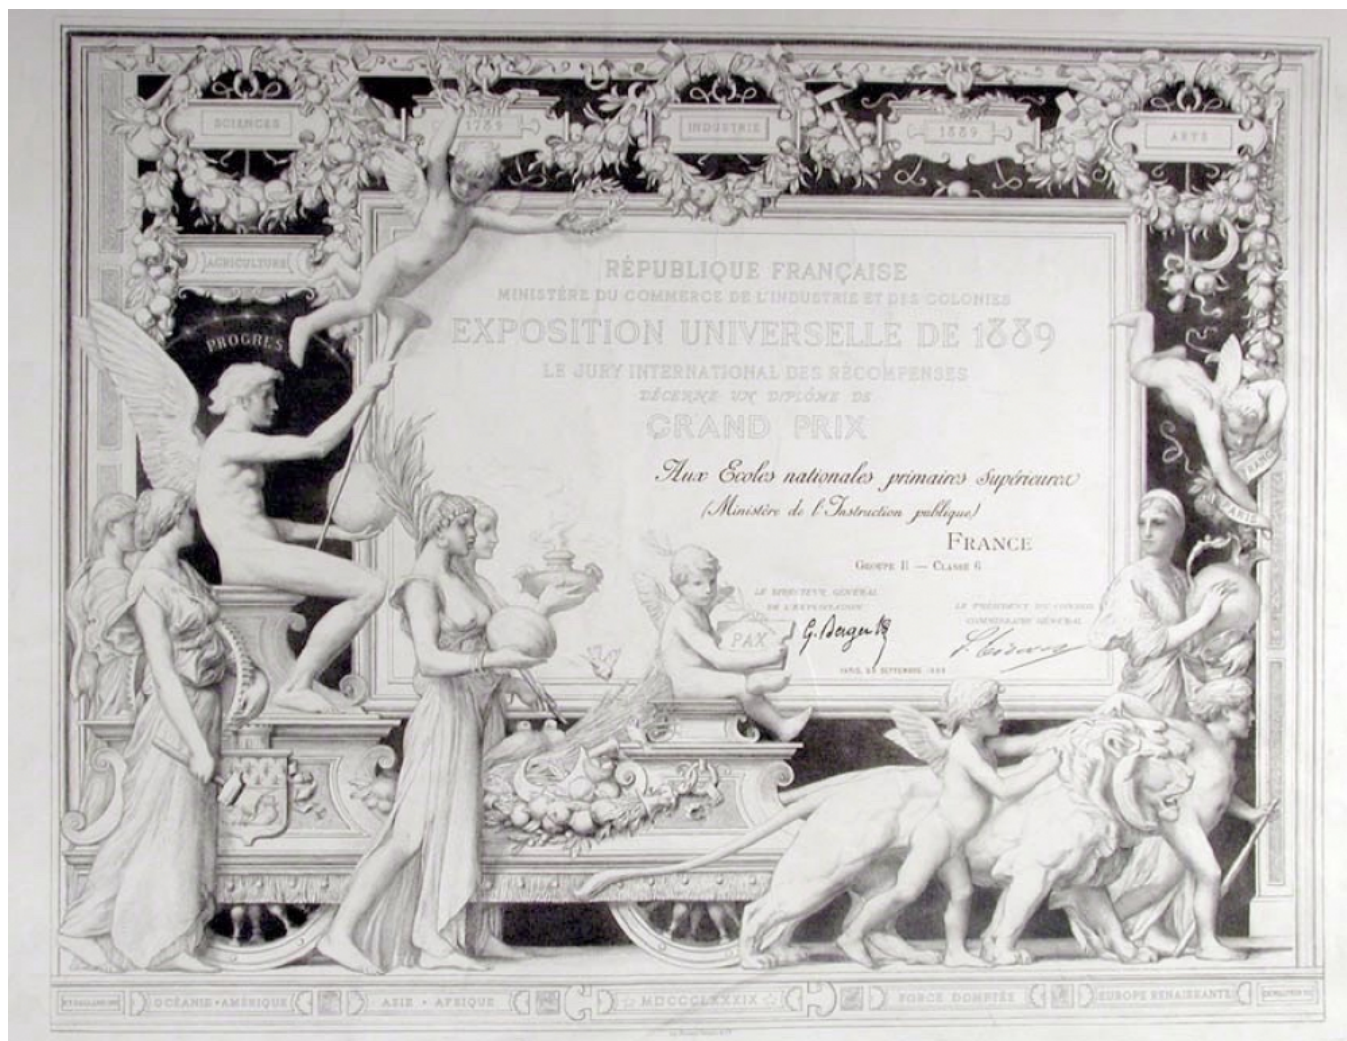 SCIENCES
1789
INDUSTRIE
1889
ARTS
AGRICULTURE
PROGRES
RÉPUBLIQUE FRANÇAISE
MINISTÈRE DU COMMERCE DE L'INDUSTRIE ET DES COLONIES
EXPOSITION UNIVERSELLE DE 1889
LE JURY INTERNATIONAL DES RÉCOMPENSES
DÉCERNE UN DIPLÔME DE
GRAND PRIX
Aux Ecoles nationales primaires Supérieures
(Ministère de l'Instruction publique)
FRANCE
GROUPE II — CLASSE 6
LE DIRECTEUR GÉNÉRAL
DE L'EXPLOITATION
LE PRÉSIDENT DU CONSEIL
COMMISSAIRE GÉNÉRAL
G. Berger
PARIS, 29 SEPTEMBRE 1889
PAX
FRANCE
PARIS
OCÉANIE • AMÉRIQUE
ASIE • AFRIQUE
☆ MDCCCLXXXIX ☆
FORCE DOMPTÉE
EUROPE RENAISSANTE